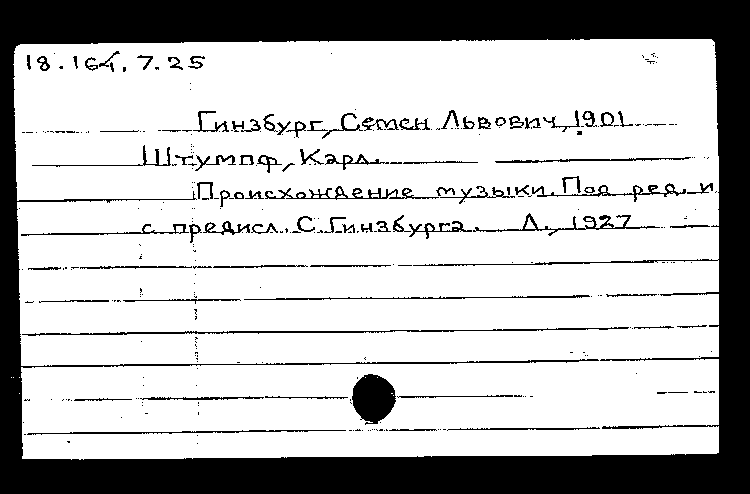 18.164.7.25
Гинзбург, Семен Львович, 1901
Штумпф, Карл.
Происхождение музыки. Под ред. и
с предисл. С. Гинзбурга. Л., 1927